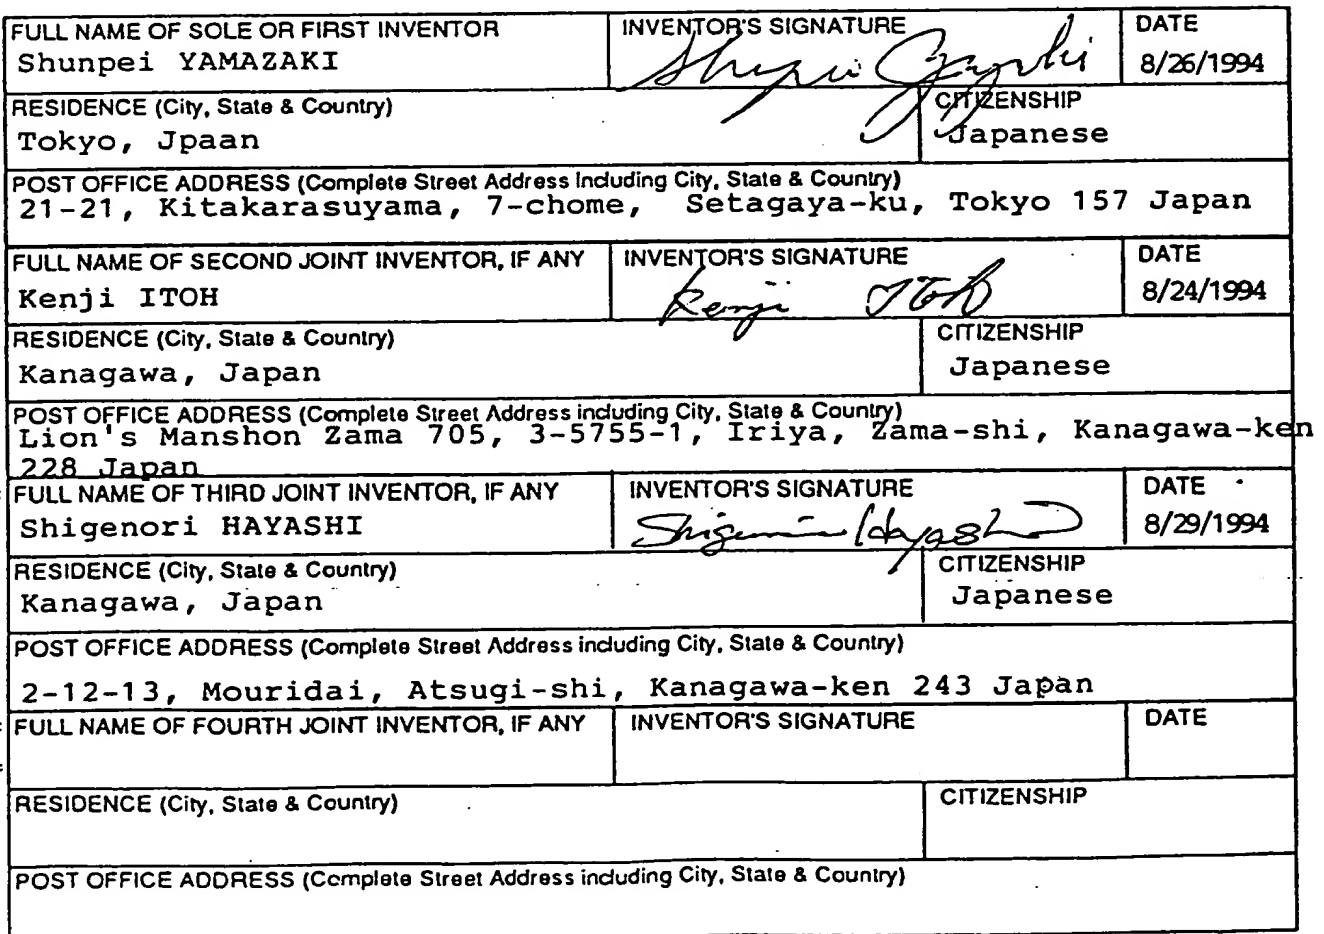 FULL NAME OF SOLE OR FIRST INVENTOR INVENTOR'S SIGNATURE DATE
Shunpei YAMAZAKI 8/26/1994
RESIDENCE (City, State & Country) CITIZENSHIP
Tokyo, Jpaan Japanese
POST OFFICE ADDRESS (Complete Street Address including City, State & Country)
21-21, Kitakarasuyama, 7-chome, Setagaya-ku, Tokyo 157 Japan
FULL NAME OF SECOND JOINT INVENTOR, IF ANY INVENTOR'S SIGNATURE DATE
Kenji ITOH Kenji ITOh 8/24/1994
RESIDENCE (City, State & Country) CITIZENSHIP
Kanagawa, Japan Japanese
POST OFFICE ADDRESS (Complete Street Address including City, State & Country)
Lion's Manshon Zama 705, 3-5755-1, Iriya, Zama-shi, Kanagawa-ken
228 Japan
FULL NAME OF THIRD JOINT INVENTOR, IF ANY INVENTOR'S SIGNATURE DATE
Shigenori HAYASHI 8/29/1994
RESIDENCE (City, State & Country) CITIZENSHIP
Kanagawa, Japan Japanese
POST OFFICE ADDRESS (Complete Street Address including City, State & Country)
2-12-13, Mouridai, Atsugi-shi, Kanagawa-ken 243 Japan
FULL NAME OF FOURTH JOINT INVENTOR, IF ANY INVENTOR'S SIGNATURE DATE
RESIDENCE (City, State & Country) CITIZENSHIP
POST OFFICE ADDRESS (Complete Street Address including City, State & Country)